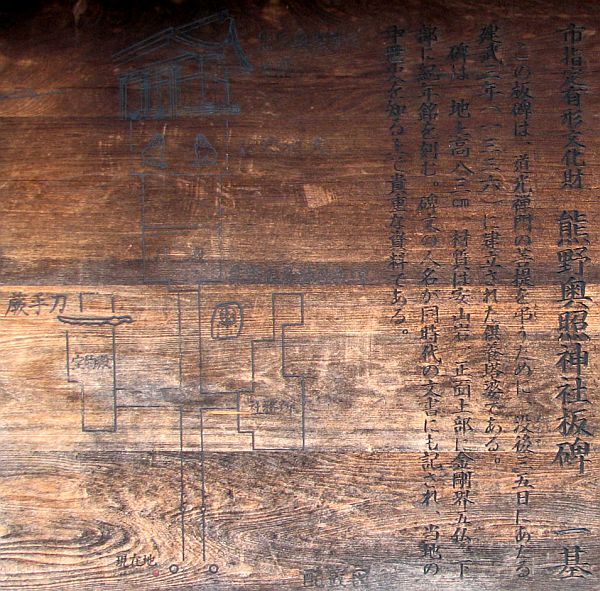 市指定有形文化財　熊野奥照神社板碑　一基
この板碑は、道光禅門の菩提を弔うために、没後三五日にあたる
建武三年（一三三六）に建立された供養塔婆である。
碑は、地上高八三㎝、材質は安山岩、正面上部に金剛界五仏、下
部に紀年銘を刻む。碑文の人名が同時代の文書にも記され、当地の
中世史を知る上で貴重な資料である。
蕨手刀
宝物殿
社務所
現在地
配置図